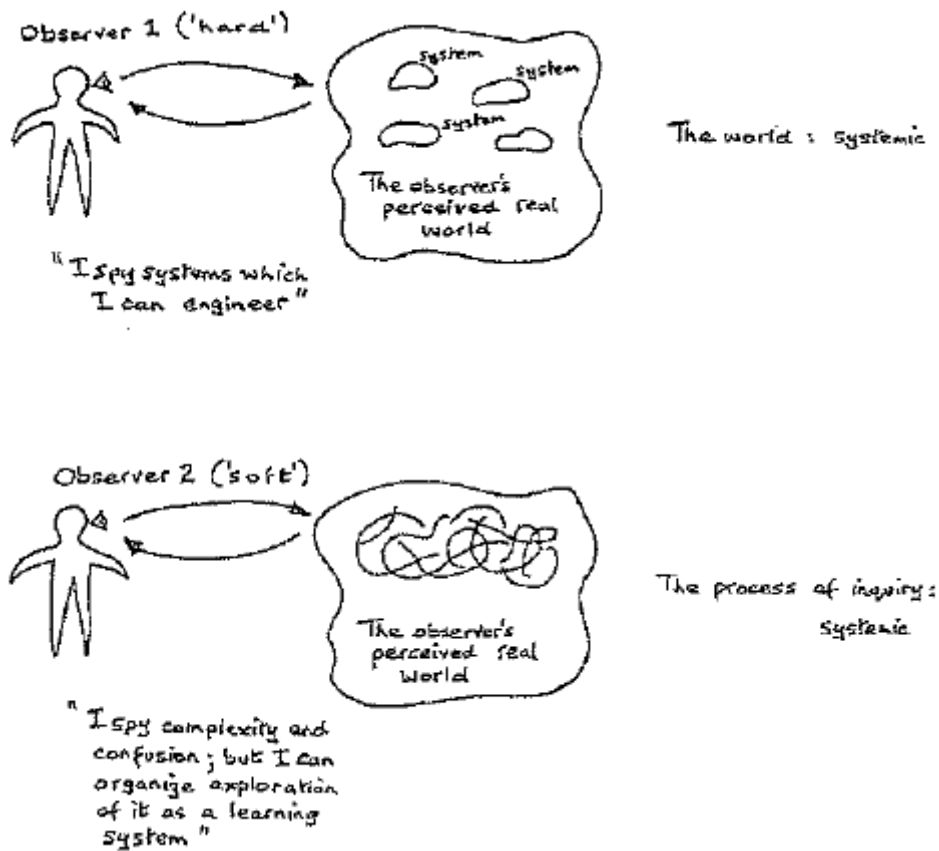 Observer 1 ('hard')
system
system
system
The observer's
perceived real
world
The world : systemic
"I spy systems which
I can engineer"
Observer 2 ('soft')
The observer's
perceived real
world
The process of inquiry:
systemic
"I spy complexity and
confusion; but I can
organize exploration
of it as a learning
system"